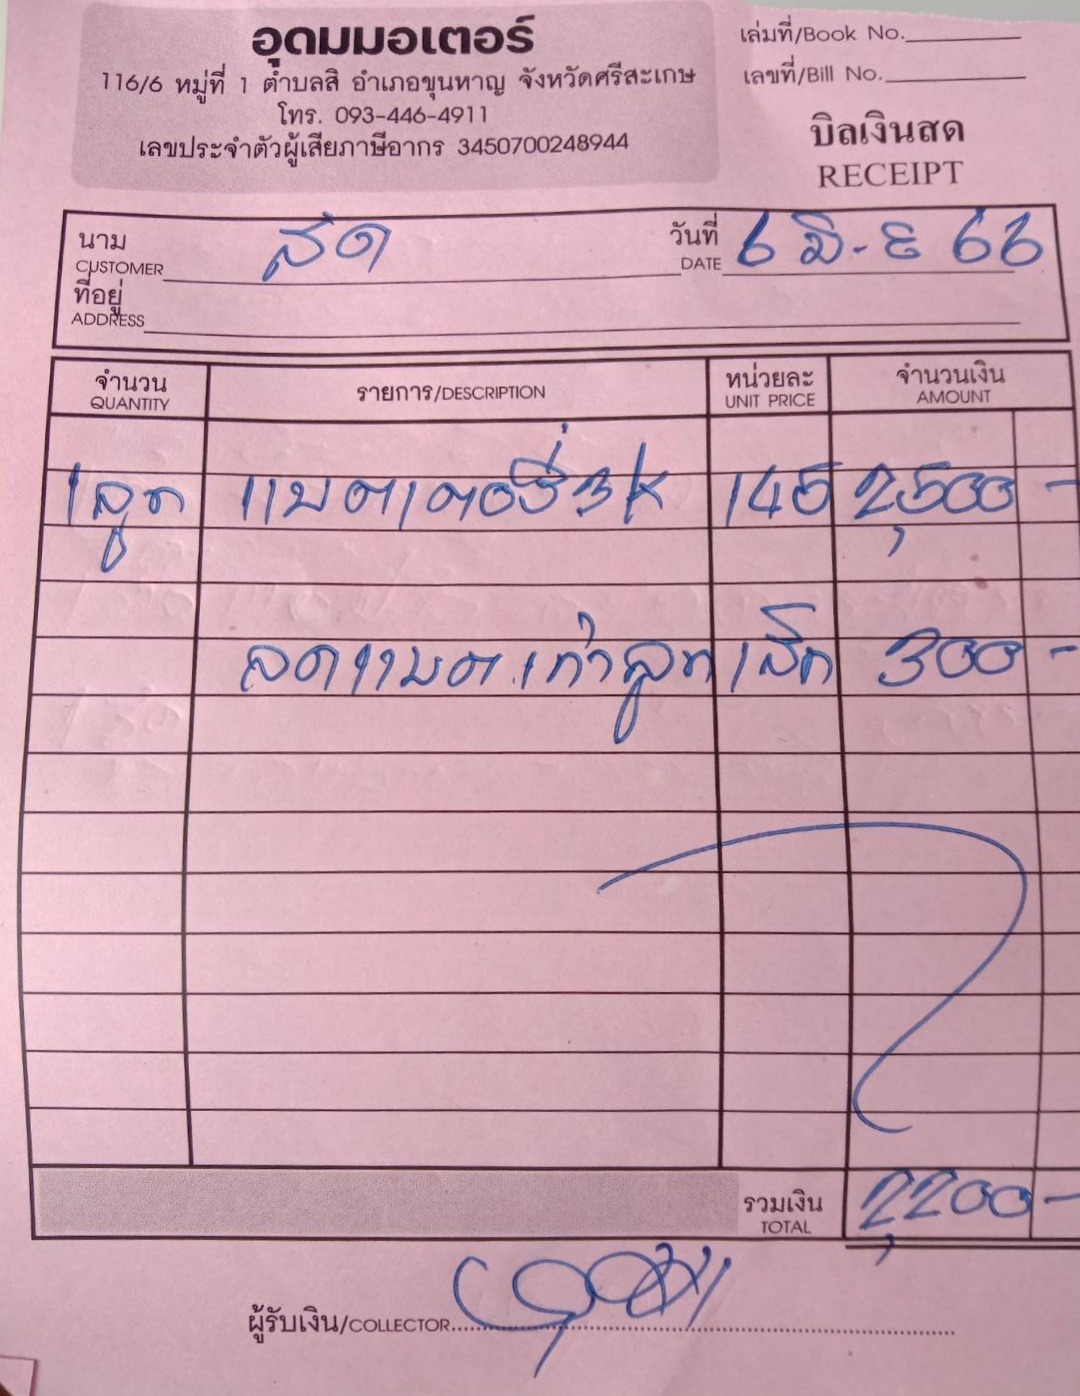 อุดมมอเตอร์
116/6 หมู่ที่ 1 ตำบลสิ อำเภอขุนหาญ จังหวัดศรีสะเกษ
โทร. 093-446-4911
เลขประจำตัวผู้เสียภาษีอากร 3450700248944
เล่มที่/Book No.
เลขที่/Bill No.
บิลเงินสด
RECEIPT
นาม สด วันที่ 6 มิ.ย 66
CUSTOMER DATE
ที่อยู่
ADDRESS
จำนวน รายการ/DESCRIPTION หน่วยละ จำนวนเงิน
QUANTITY UNIT PRICE AMOUNT
1 ลูก แบตเตอรี่ 3K 145 2,500 -
ลดแบต.เก่าลูกเล็ก 300 -
รวมเงิน 2,200 -
TOTAL
ผู้รับเงิน/COLLECTOR